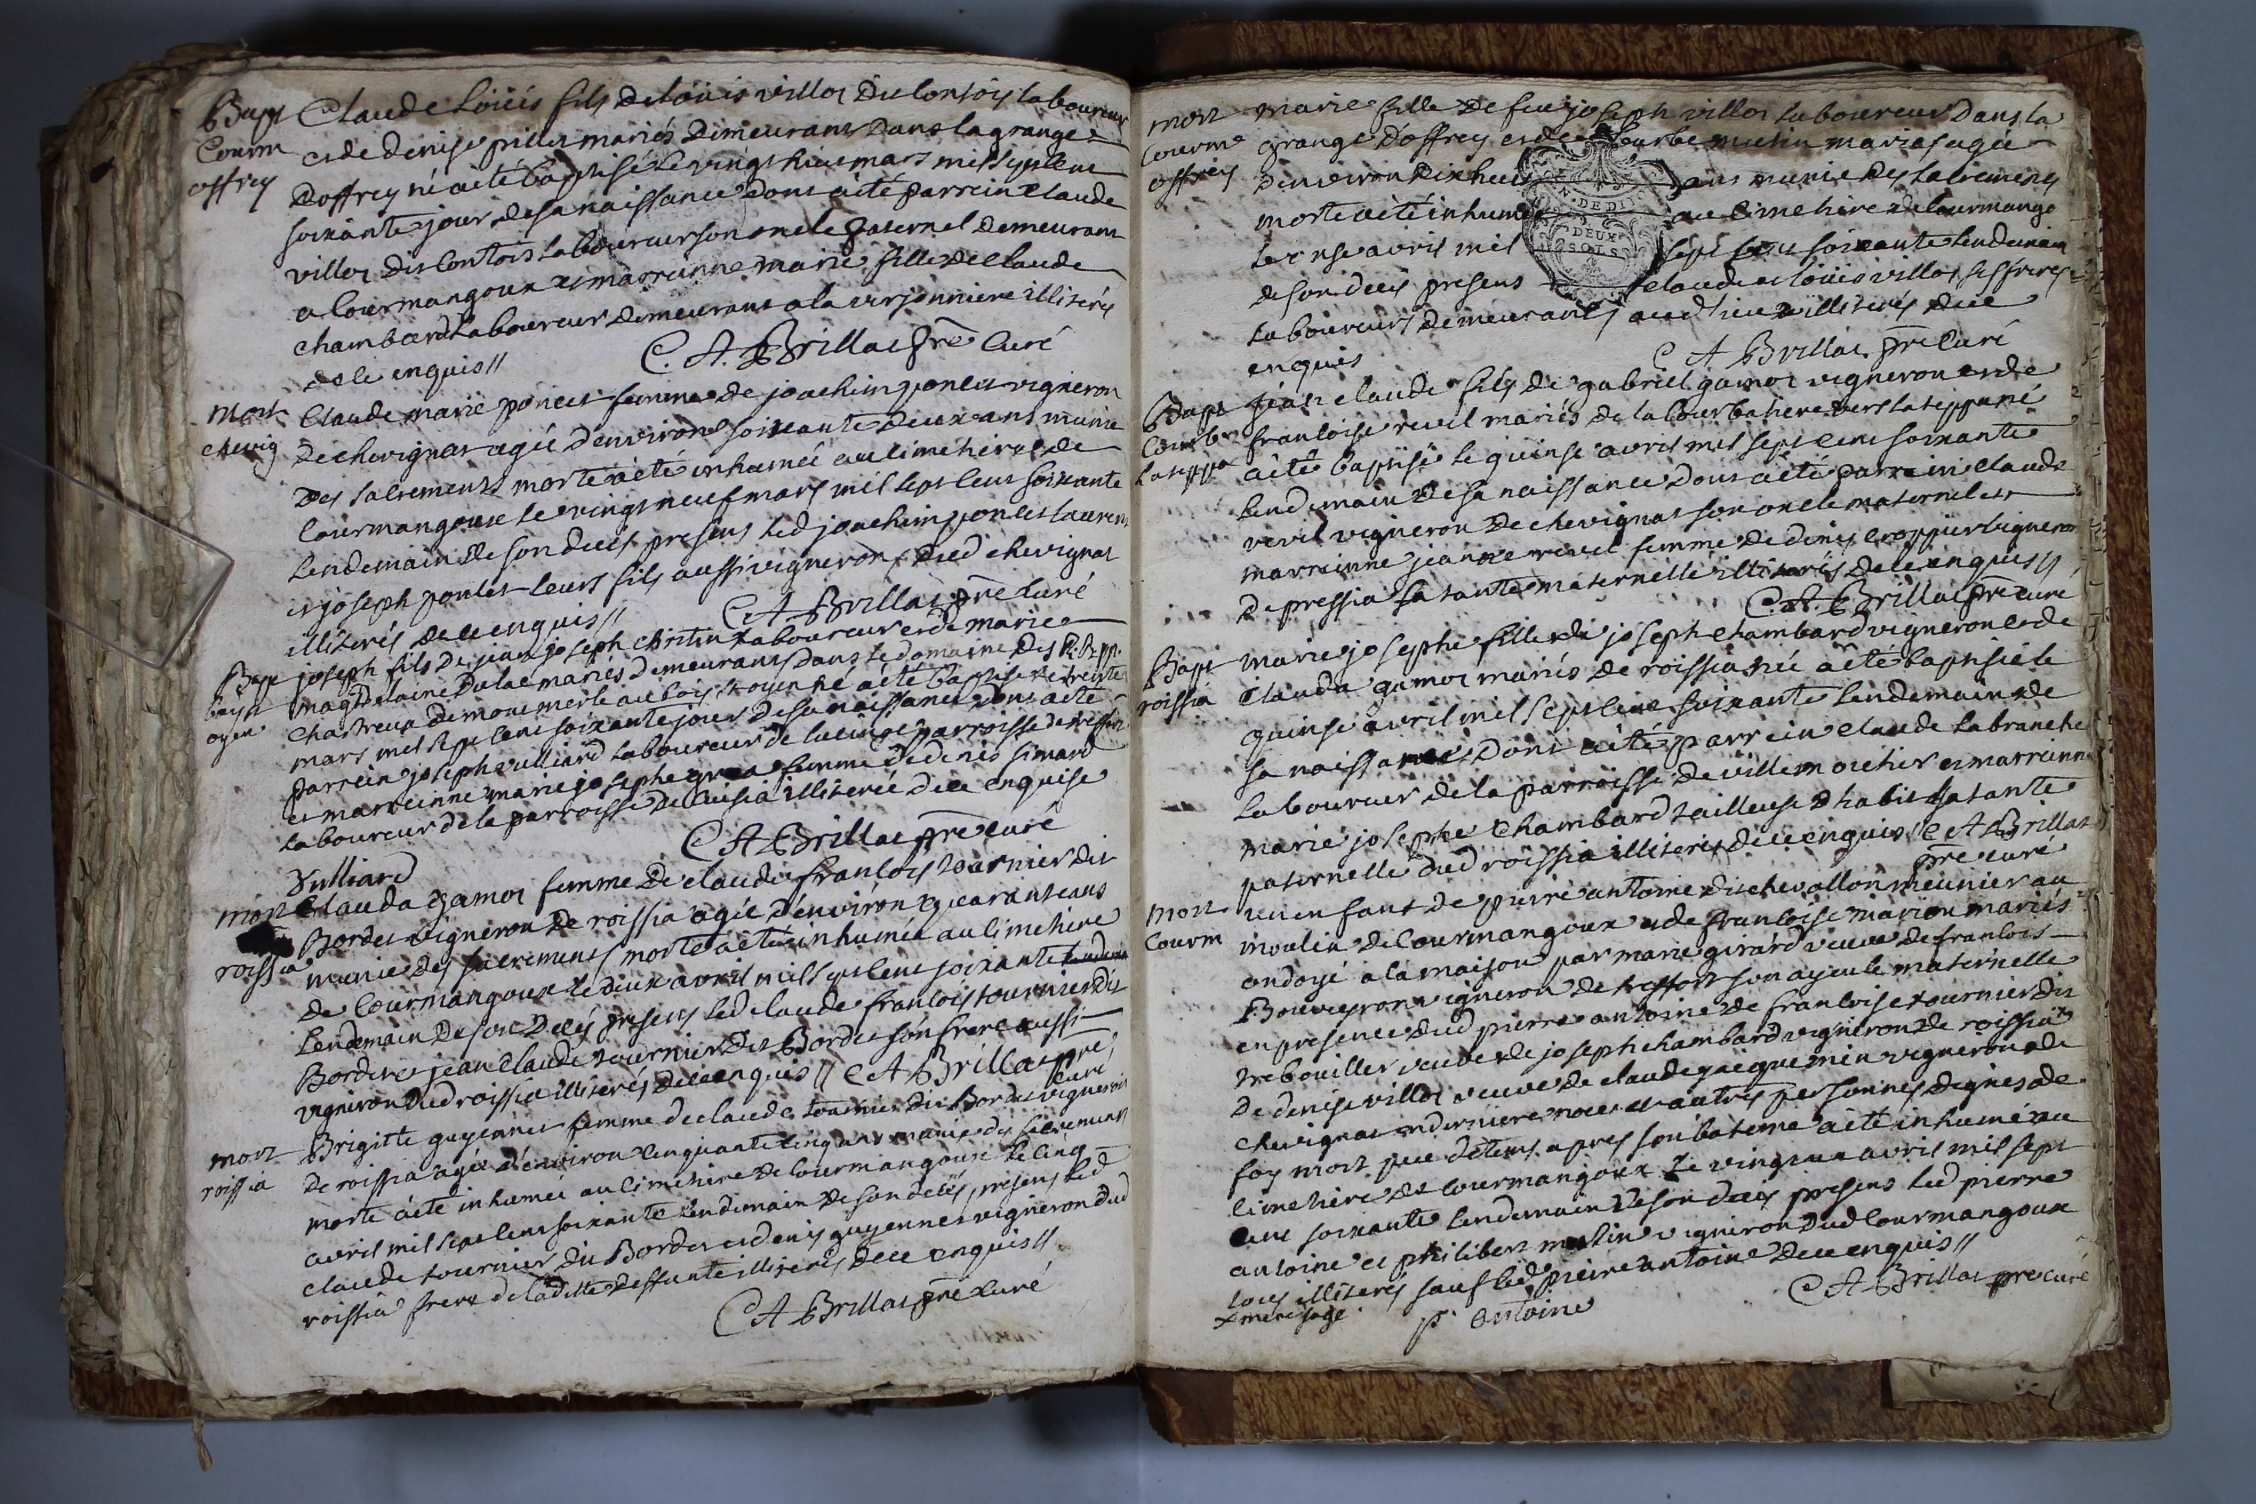 Bapt
Courm
offrey
Claude Loüis fils de loüis villot dit Contois laboureur
et de denise pillet mariés demeurant dans la grange
d'offrey né a été baptisé le vingt huit mars mil sept cent
soixante jour de sa naissance dont a été parrein Claude
villot dit Contois laboureur son oncle paternel demeurant
a Courmangoux et marreinne marie fille de Claude
chambard laboureur demeurant a la verjonniere illiterés
de ce enquis //
C. A. Brillat prê Curé
mort
chevig
Claude marie poncet femme de joachim poncet vigneron
de chevignat agée d'environ soixante deux ans munie
des sacrements morte a été inhumée au cimetiere de
Courmangoux le vingt neuf mars mil sept cent soixante
lendemain de son decés presens led joachim poncet laurent
et joseph poncet leurs fils aussi vignerons dud chevignat
illiterés de ce enquis //
C A Brillat prê Curé
Bapt
oyen
joseph fils de jean joseph Chritin laboureur et de marie
magdelaine Dulac mariés demeurant dans le domaine des R. R. pp.
Chartreux de montmerle au bois d'oyen né a été baptisé le trente
mars mil sept cent soixante jour de sa naissance dont a été
parrein joseph vulliard laboureur de lucinat parroisse de treffort
et marreinne marie josephe femme de denis simard
laboureur de la parroisse de Cuisia illiterée de ce enquise
C A Brillat prê curé
Vulliard
mort
roissia
Clauda gamot femme de claude francois tournier dit
Bordet vigneron de roissia agée d'environ quarante ans
munie des sacrements morte a été inhumée au cimetiere
de Courmangoux le deux avril mil sept cent soixante
lendemain de son decés presens led claude francois tournier dit
Bordet et jean Claude tournier dit Bordet son frere aussi
vigneron dud roissia illiterés de ce enquis // C A Brillat prê
curé
mort
roissia
Brigitte guyennet femme de claude tournier dit Bordet vigneron
de roissia agée d'environ cinquante cinq ans munie des sacrements
morte a été inhumée au cimetiere de Courmangoux le cinq
avril mil sept cent soixante lendemain de son decés, presens led
claude tournier dit Bordet et denis guyennet vigneron dud
roissia frere de laditte deffunte illiterés de ce enquis //
C A Brillat prê curé
mort
Courm
offrey
marie fille de feu joseph villot laboureur dans la
grange d'offrey et de Courbe mutin mariés agée
d'environ dix huit ans munie des sacremens
morte a été inhumée au cimetiere de Courmangoux
le onse avril mil sept cent soixante lendemain
de son decés presens claude et loüis villot ses freres
laboureurs demeurants aud lieu illiterés de ce
enquis
C A Brillat prê Curé
DE DI
DEUX
SOLS
Bapt
Courb
la teppe
jean claude fils de gabriel gamot vigneron et de
francoise revil mariés de la Courbatiere vers la teppe né
a été baptisé le quinse avril mil sept cent soixante
lendemain de sa naissance dont a été parrein claude
revil vigneron de chevignat son oncle maternel et
marreinne jeanne revil femme de denis croppet vigneron
de pressia sa tante maternelle illiterés de ce enquis //
C. A. Brillat prê curé
Bapt
roissia
marie josephe fille de joseph chambard vigneron et de
Clauda gamot mariés de roissia née a été baptisée le
quinse avril mil sept cent soixante lendemain de
sa naissance dont a été parrein claude labranche
laboureur de la parroisse de villemotier et marreinne
marie josephe Chambard tailleuse d'habit sa tante
paternelle dud roissia illiterés de ce enquis // C A Brillat
prê curé
mort
Courm
un enfant de pierre antoine dit chevallon meunier au
moulin de Courmangoux et de francoise marion mariés
ondoyé a la maison par marie girard veuve de francois
Bouveyron vigneron de treffort son ayeule maternelle
en presence dud pierre antoine de francoise tournier dit
trebouillet veuve de joseph chambard vigneron de roissia
de denise villot veuve de claude jacquemin vigneron de
chevignat en derniere noces et autres personnes dignes de
foy mort peu de tems apres son bateme a été inhumé au
cimetiere de Courmangoux le vingt un avril mil sept
cent soixante lendemain de son decés presens led pierre
antoine et philibert mutin vigneron dud Courmangoux
tous illiterés sauf led pierre antoine de ce enquis //
x mere sage
p antoine
C A Brillat prê curé